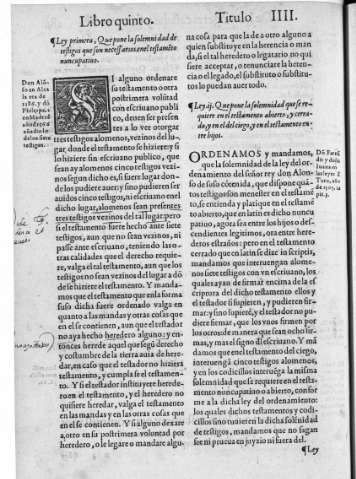 Libro quinto. Titulo IIII.
¶Ley primera, Que pone la solemnidad de
testigos que son necessarios en el testamẽto
nuncupatiuo.
Don Alõ-
so en Alca
la era de
1386. y dõ
Philipe. 2.
en Madrid
año de
testigos.
SI alguno ordenare
su testamento o otra
postrimera volũtad
con escriuano publi
co, deuen ser presen
tes a lo ver otorgar
tres testigos alomenos, vezinos del lu-
gar, donde el testamento se hiziere: y si
lo hiziere sin escriuano publico, que
sean ay alomenos cinco testigos vezi-
nos segun dicho es, si fuere lugar don-
de los pudiere auer: y sino pudieren ser
auidos cinco testigos, ni escriuano en el
dicho lugar, alomenos sean presentes
tres testigos vezinos del tal lugar: pero
si el testamento fuere hecho ante siete
testigos, aun que no sean vezinos, ni
passe ante escriuano, teniendo las o-
tras calidades que el derecho requie-
re, valga el tal testamento, aun que los
testigos no sean vezinos del lugar a dõ
de se hiziere el testamento. Y manda-
mos que el testamento que en la forma
suso dicha fuere ordenado valga en
quanto a las mandas y otras cosas que
en el se contienen, aun que el testador
no aya hecho heredero alguno: y en-
tonces herede aquel que segũ derecho
y costumbre de la tierra auia de here-
dar, en caso que el testador no hiziera
testamento, y cumplase el testamen-
to. Y si el testador instituyere herede-
ro en el testamento, y el heredero no
quisiere heredar, valga el testamento
en las mandas y en las otras cosas que
en el se contienen. Y si alguno dexare
a otro en su postrimera voluntad por
heredero, o le legare o mandare algu-
na cosa para que la de a otro alguno a
quien substituye en la herencia o man
da, si el tal heredero o legatario no qui
siere aceptar, o renunciare la herencia
o el legado, el substituto o substitu-
tos lo puedan auer todo.
¶Ley .ij. Que pone la solemnidad que se re-
quiere en el testamento abierto, y cerra-
do, y en el del ciego, y en el testamento en-
tre hijos.
ORDENAMOS y mandamos,
que la solemnidad de la ley del or-
denamiento del señor rey don Alon-
so de suso contenida, que dispone quã
tos testigos son menester en el testamẽ
to, se entienda y platique en el testamẽ
to abierto, que en latin es dicho nuncu
patiuo, agora sea entre los hijos o des-
cendientes legitimos, ora entre here-
deros estraños: pero en el testamento
cerrado que en latin se dize in scriptis,
mandamos que interuengan alome-
nos siete testigos con vn escriuano, los
quales ayan de firmar encima de la es
criptura del dicho testamento ellos y
el testador si supieren, y pudieren fir-
mar: y sino supierẽ, y el testador no pu-
diere firmar, que los vnos firmen por
los otros de manera que sean ocho fir-
mas, y mas el signo del escriuano. Y mã
damos que en el testamento del ciego,
interuengã cinco testigos alomenos,
y en los codicillos interuẽga la misma
solemnidad que se requiere en el testa-
mento nuncupatiuo o abierto, confor
me a la dicha ley del ordenamiento:
los quales dichos testamentos y codi-
cillos sino tuuieren la dicha solẽnidad
de testigos, mandamos que no hagan
fee ni prueua en juyzio ni fuera del.
¶Ley